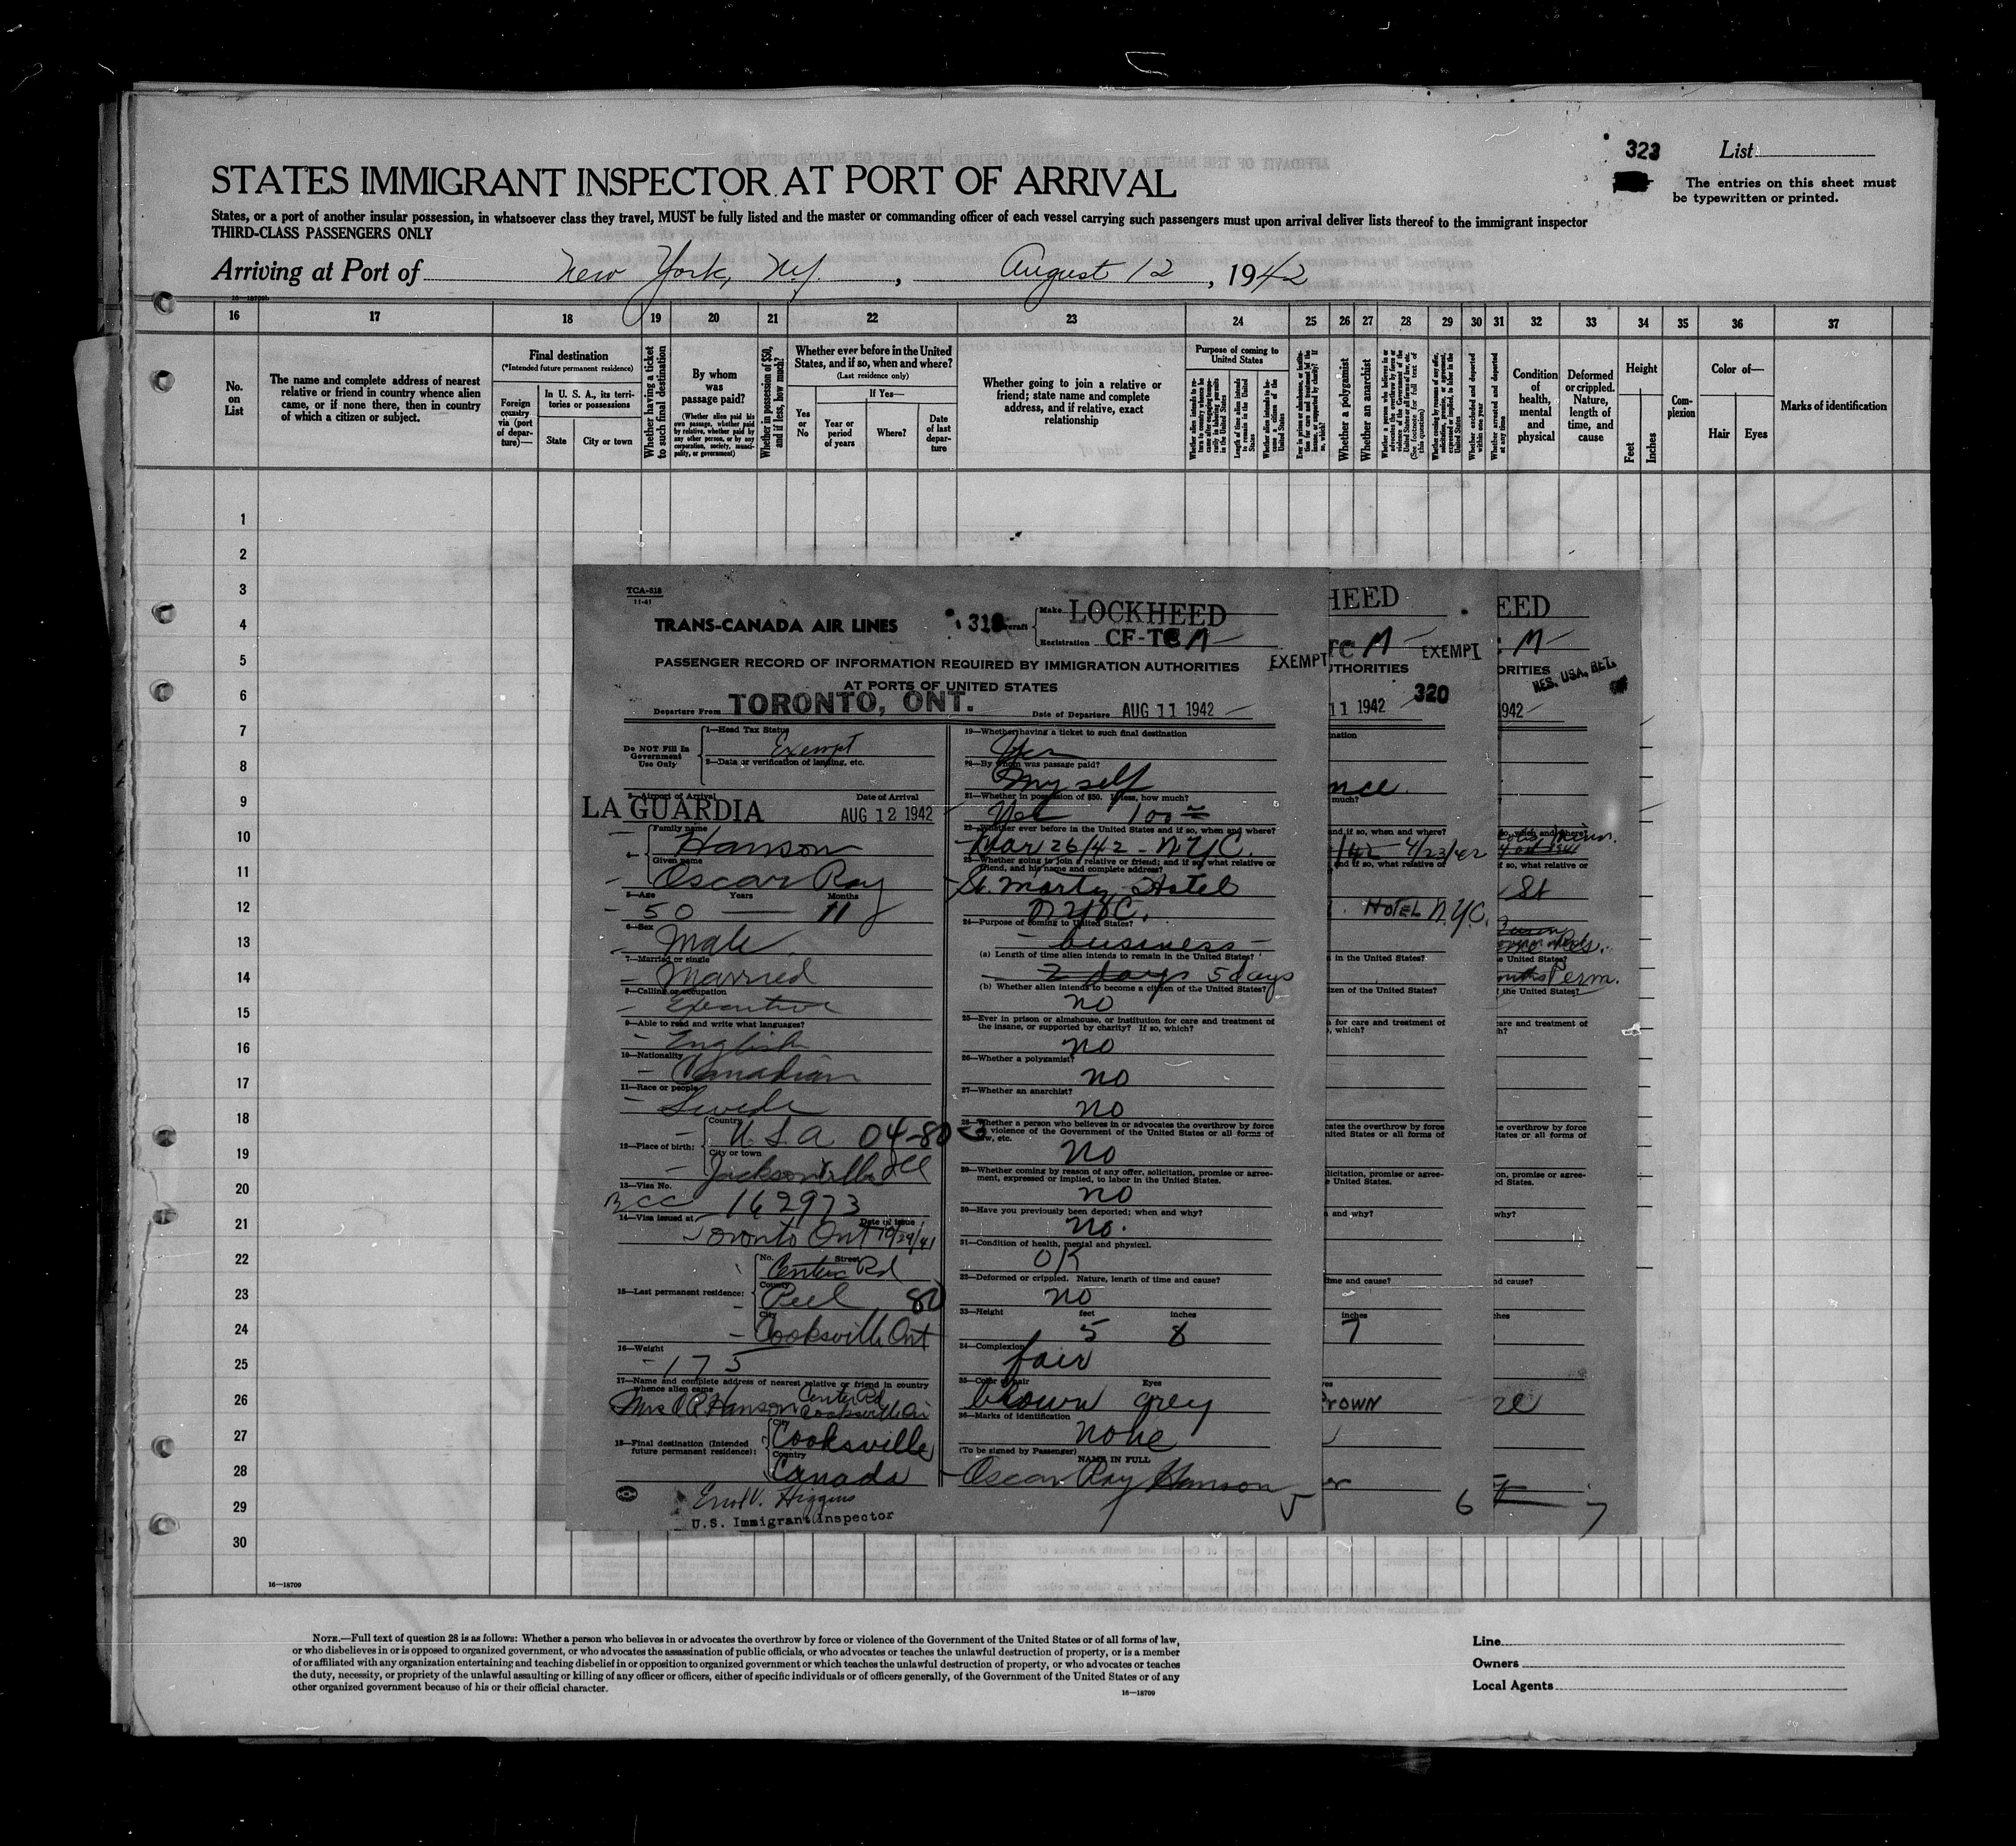 323
List
STATES IMMIGRANT INSPECTOR AT PORT OF ARRIVAL
The entries on this sheet must
be typewritten or printed.
States, or a port of another insular possession, in whatsoever class they travel, MUST be fully listed and the master or commanding officer of each vessel carrying such passengers must upon arrival deliver lists thereof to the immigrant inspector
THIRD-CLASS PASSENGERS ONLY
Arriving at Port of New York, N.Y., August 12, 1942
16 17 18 19 20 21 22 23 24 25 26 27 28 29 30 31 32 33 34 35 36 37
No. on List
The name and complete address of nearest
relative or friend in country whence alien
came, or if none there, then in country
of which a citizen or subject.
Final destination
(*Intended future permanent residence)
Foreign country via (port of departure)—
In U. S. A., its territories or possessions
State
City or town
Whether having a ticket to such final destination
By whom was passage paid?
(Whether alien paid his own passage, whether paid by relative, whether paid by any other person, or by any corporation, society, municipality, or government)
Whether in possession of $50, and if less, how much?
Whether ever before in the United
States, and if so, when and where?
(Last residence only)
Yes or No
If Yes—
Year or period of years
Where?
Date of last departure
Whether going to join a relative or
friend; state name and complete
address, and if relative, exact
relationship
Purpose of coming to
United States
Length of time alien intends to remain in the United States
Whether alien intends to become a citizen of the United States
Whether a polygamist
Whether an anarchist
Whether arrested and deported at any time
Condition of health, mental and physical
Deformed or crippled. Nature, length of time, and cause
Height
Feet
Inches
Complexion
Color of—
Hair
Eyes
Marks of identification
1
2
3
4
5
6
7
8
9
10
11
12
13
14
15
16
17
18
19
20
21
22
23
24
25
26
27
28
29
30
16—18709
TCA-318
11-41
TRANS-CANADA AIR LINES
Make LOCKHEED
Registration CF-TC M
PASSENGER RECORD OF INFORMATION REQUIRED BY IMMIGRATION AUTHORITIES
EXEMPT
AT PORTS OF UNITED STATES
Departure From TORONTO, ONT.
Date of Departure AUG 11 1942
Do NOT Fill In
Government
Use Only
1—Head Tax Status
Exempt
2—Data or verification of landing, etc.
3—Airport of Arrival
Date of Arrival
LA GUARDIA AUG 12 1942
Family name
Hanson
Given name
Oscar Ray
5—Age Years Months
50 11
6—Sex
Male
7—Married or single
Married
8—Calling or occupation
Executive
9—Able to read and write what languages?
English
10—Nationality
Canadian
11—Race or people
Swede
12—Place of birth:
Country
U.S.A 04-80
City or town
Jacksonville Ill
13—Visa No.
162973
14—Visa issued at
Date of Issue
Toronto Ont 10/29/41
15—Last permanent residence:
No. Street
Center Rd
County
Peel 80
City
Cooksville Ont
16—Weight
175
17—Name and complete address of nearest relative or friend in country
whence alien came
Mrs O R Hanson Center Rd
Cooksville
18—Final destination (Intended
future permanent residence):
City
Cooksville
Country
Canada
Higgins
U.S. Immigrant Inspector
19—Whether having a ticket to such final destination
Yes
20—By whom was passage paid?
Myself
21—Whether in possession of $50. If less, how much?
Yes 100
22—Whether ever before in the United States and if so, when and where?
Mar 26/42 - N.Y.C.
23—Whether going to join a relative or friend; and if so, what relative or
friend, and his name and complete address?
Hotel
N.Y.C.
24—Purpose of coming to United States?
business
(a) Length of time alien intends to remain in the United States?
2 days 5 days
(b) Whether alien intends to become a citizen of the United States?
no
25—Ever in prison or almshouse, or institution for care and treatment of
the insane, or supported by charity? If so, which?
no
26—Whether a polygamist?
no
27—Whether an anarchist?
no
28—Whether a person who believes in or advocates the overthrow by force
or violence of the Government of the United States or all forms of
law, etc.
no
29—Whether coming by reason of any offer, solicitation, promise or agree-
ment, expressed or implied, to labor in the United States.
no
30—Have you previously been deported; when and why?
no.
31—Condition of health, mental and physical.
OK
32—Deformed or crippled. Nature, length of time and cause?
no
33—Height feet inches
5 8
34—Complexion
fair
35—Color of hair Eyes
brown grey
36—Marks of identification
none
(To be signed by Passenger)
NAME IN FULL
Oscar Ray Hanson
5
HEED
M
EXEMPT
THORITIES
11 1942
320
4/23/42
HOTEL N.Y.C.
inches
7
6
EED
M
ORITIES
RES. USA, RET.
1942
St
Perm.
7
NOTE.—Full text of question 28 is as follows: Whether a person who believes in or advocates the overthrow by force or violence of the Government of the United States or of all forms of law,
or who disbelieves in or is opposed to organized government, or who advocates the assassination of public officials, or who advocates or teaches the unlawful destruction of property, or is a member
of or affiliated with any organization entertaining and teaching disbelief in or opposition to organized government or which teaches the unlawful destruction of property, or who advocates or teaches
the duty, necessity, or propriety of the unlawful assaulting or killing of any officer or officers, either of specific individuals or of officers generally, of the Government of the United States or of any
other organized government because of his or their official character.
16—18709
Line
Owners
Local Agents